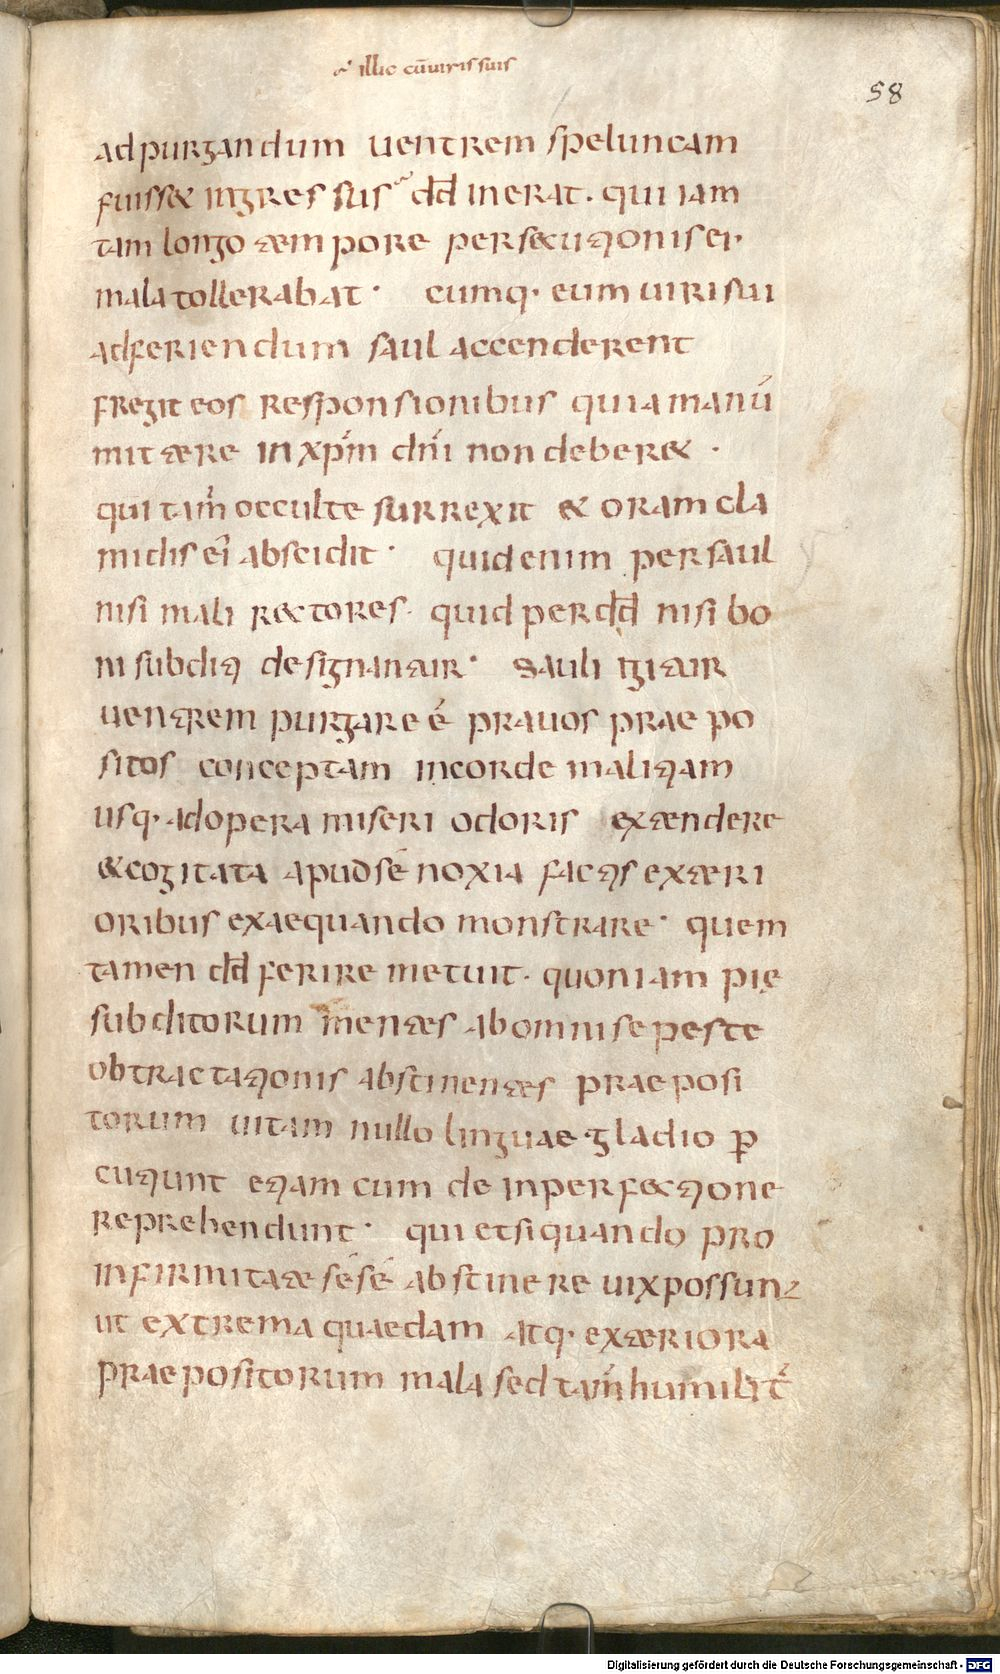 illic cū uiris suis
58
ad purgandum uentrem speluncam
fuiss& ingressus dd̄ inerat· qui iam
tam longo tempore persecutionis ei·
mala tollerabat· cumq· eum uiri sui
ad feriendum saul accenderent
fregit eos responsionibus quia manū
mittere in xp̄m dn̄i non deber& ·
qui tam̄ occulte surrexit & oram cla
midis ei abscidit· quid enim per saul
nisi mali rectores· quid per dd̄ nisi bo
ni subditi designantur· Sauli igitur
uentrem purgare ē prauos praepo
sitos conceptam in corde malitiam
usq· ad opera miseri odoris extendere
& cogitata apud se noxia factis exteri
oribus exaequando monstrare· quem
tamen dd̄ ferire metuit· quoniam pię
subditorum mentes ab omni se peste
obtractationis abstinentes praeposi
torum uitam nullo linguae gladio p̱
cutiunt etiam cum de inperfectione
reprehendunt· qui et si quando pro
infirmitate sése abstinere uix possunt
ut extrema quaedam atq· exteriora
praepositorum mala sed tam̄ humilit̄
Digitalisierung gefördert durch die Deutsche Forschungsgemeinschaft - DFG